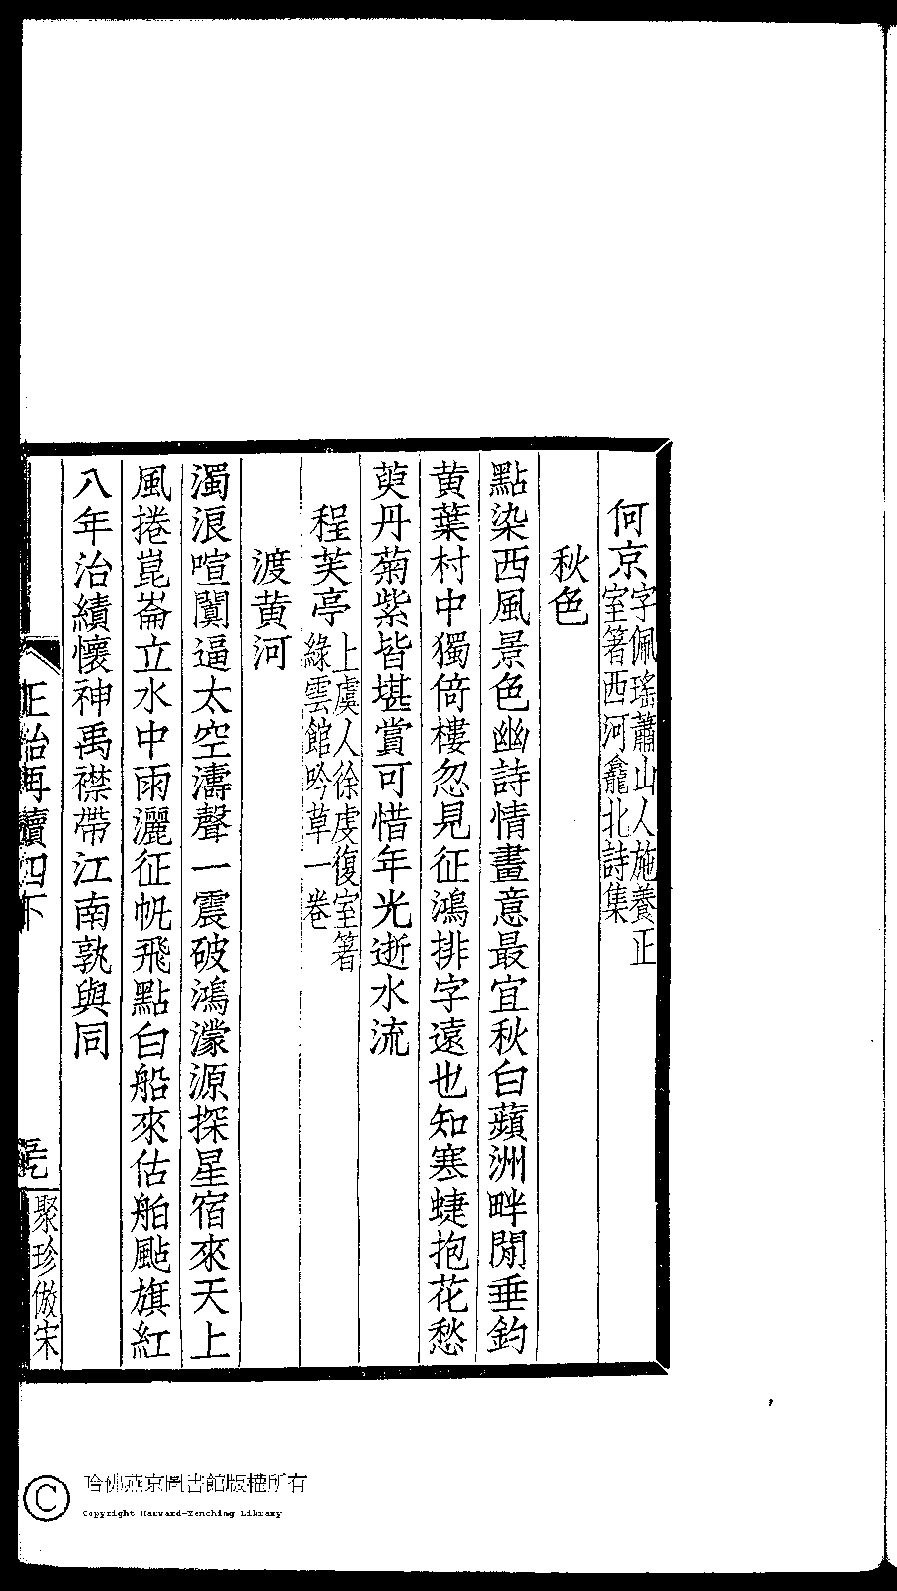 何京字佩瑤蕭山人施養正
室箸西河龕北詩集
秋色
點染西風景色幽詩情畫意最宜秋白蘋洲畔閒垂釣
黄葉村中獨倚樓忽見征鴻排字遠也知寒蜨抱花愁
萸丹菊紫皆堪賞可惜年光逝水流
程芙亭上虞人徐虔復室箸
綠雲館吟草一卷
渡黄河
濁浪喧闐逼太空濤聲一震破鴻濛源探星宿來天上
風捲崑崙立水中雨灑征帆飛點白船來估舶颭旗紅
八年治績懷神禹襟帶江南孰與同
正始再續四下
聚珍倣宋
哈佛燕京圖書館版權所有
Copyright Harvard-Yenching Library